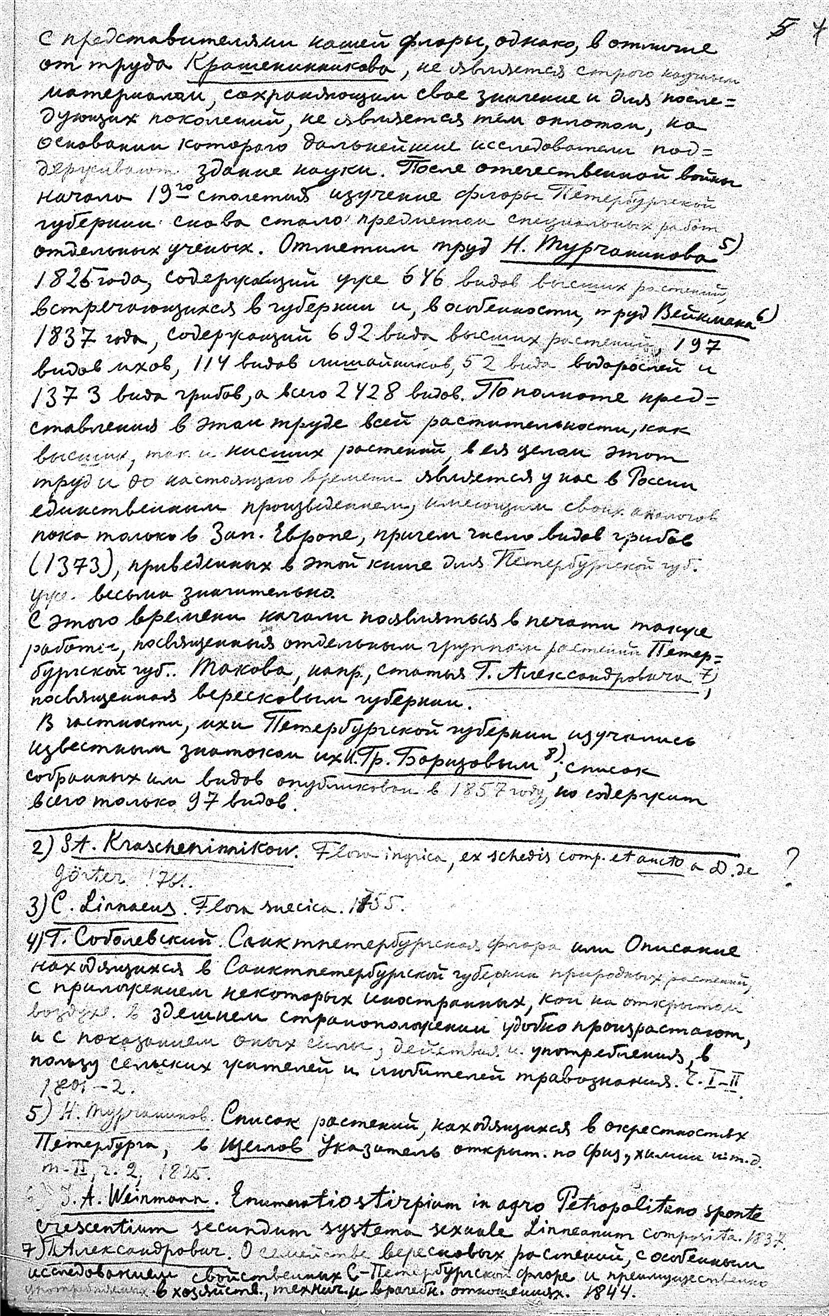 5 4
с представителями нашей флоры, однако, в отличие
от труда Крашенинникова, не является строго научным
материалом, сохраняющим свое значение и для после=
дующих поколений, не является тем оплотом, на
основании которого дальнейшие исследователи под=
держивают здание науки. После отечественной войны
начала 19го столетия изучение флоры Петербургской
губернии снова стало предметом специальных работ
отдельных ученых. Отметим труд Н. Турчанинова 5)
1825 года, содержащий уже 646 видов высших растений,
встречающихся в губернии и, в особенности, труд Вейнмана 6)
1837 года, содержащий 692 вида высших растений, 197
видов мхов, 114 видов лишайников, 52 вида водорослей и
1373 вида грибов, а всего 2428 видов. По полноте пред=
ставления в этом труде всей растительности, как
высших, так и низших растений, в ея целом этот
труд и до настоящаго времени является у нас в России
единственным произведением, имеющим своих аналогов
пока только в Зап. Европе, причем число видов грибов
(1373), приведенных в этой книге для Петербургской губ.
уже весьма значительно.
С этого времени начали появляться в печати также
работы, посвященныя отдельным группам растений Петер=
бургской губ.. Такова, напр., статья Г. Александровича 7),
посвященная вересковым губернии.
В частности, мхи Петербургской губернии изучались
известным знатоком их И.Гр. Борщовым 8), список
собранных им видов опубликован в 1857 году, но содержит
всего только 97 видов.
2) St. Krascheninnikow. Flora ingrica, ex schedis comp. et aucto a D. de ?
Görter 1761.
3) C. Linnaeus. Flora suecica. 1755.
4) Г. Соболевский. Санктпетербургская флора или Описание
находящихся в Санктпетербургской губернии природных растений,
с приложением некоторых иностранных, кои на открытом
воздухе в здешнем страноположении удобно произрастают,
и с показанием оных силы, действия и употребления, в
пользу сельских жителей и любителей травознания. Ч. I-II.
1801-2.
5) Н. Турчанинов. Список растений, находящихся в окрестностях
Петербурга, в Щеглов Указатель открыт. по физ., химии и т.д.
т. II, ч. 2, 1825.
6) J. A. Weinmann. Enumeratio stirpium in agro Petropolitano sponte
crescentium secundum systema sexuale Linneanum composita. 1837
7) Г. Александрович. О семействе вересковых растений, с особенным
исследованием свойственных С-Петербургской флоре и преимущественно
употребляемых в хозяйств., технич. и врачебн. отношениях. 1844.